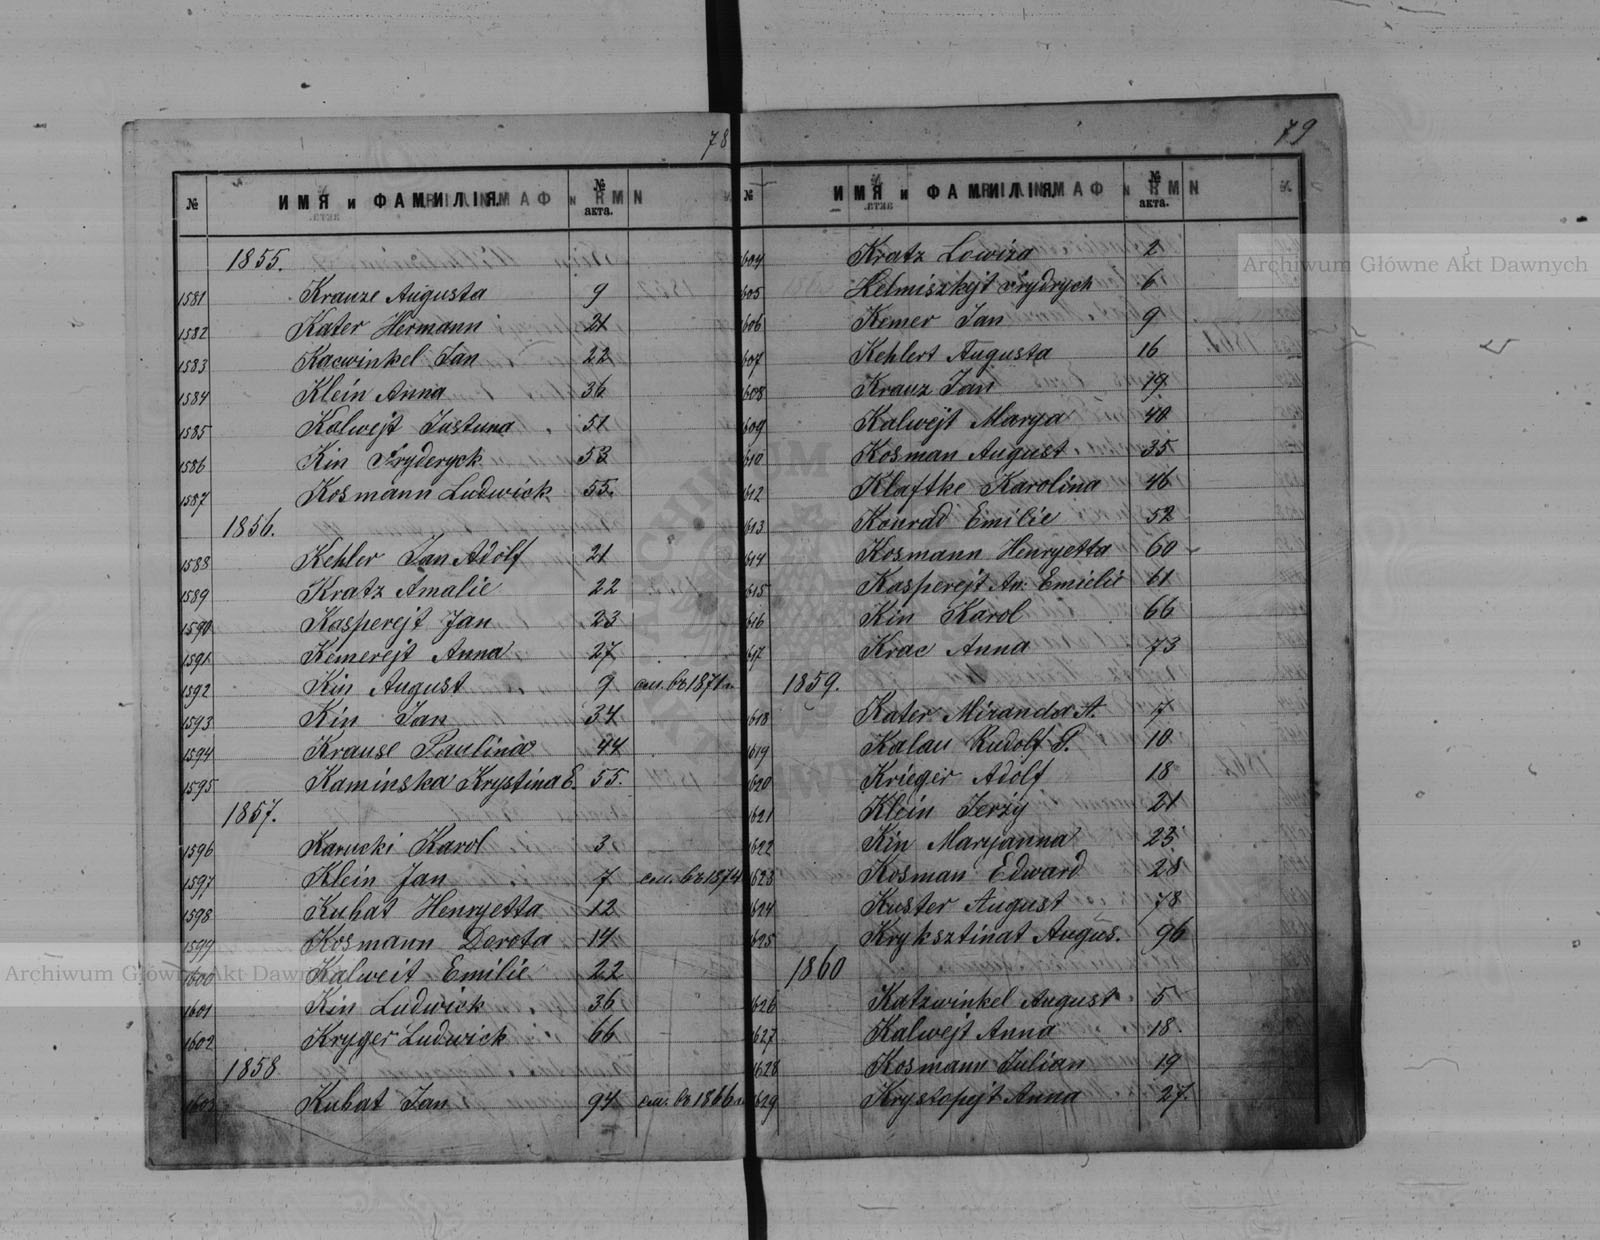 78
№ ИМЯ и ФАМИЛІЯ. № акта.
1855.
1581 Krauze Augusta 9
1582 Kater Hermann 21
1583 Kacwinkel Jan 22
1584 Klein Anna 36
1585 Kalwejt Justuna 51
1586 Kin Fryderyck 53
1587 Kosmann Ludwick 55.
1856.
1588 Kehler Jan Adolf 21
1589 Kratz Amalie 22
1590 Kasperejt Jan 23
1591 Kemerejt Anna 27
1592 Kin August 9 см. въ 1871
1593 Kin Jan 34
1594 Krause Paulina 44
1595 Kaminska Krystina E. 55.
1857.
1596 Karucki Karol 3
1597 Klein Jan 7 см. въ 1874
1598 Kubat Henryetta 12
1599 Kosmann Dorota 14
1600 Kalweit Emilie 22
1601 Kin Ludwick 36
1602 Kryger Ludwick 66
1858
1603 Kubat Jan 94 см. въ 1866
79
№ ИМЯ и ФАМИЛІЯ. № акта.
604 Kratz Lowiza 2
605 Helmiszkejt Frydrych 6
606 Kemer Jan 9
607 Kehlert Augusta 16
608 Krauz Jan 19
609 Kalwejt Marya 40
610 Kosman August 35
612 Klaftke Karolina 46
613 Konrad Emilie 52
614 Kosmann Henryetta 60
615 Kasperejt An. Emielie 61
616 Kin Karol 66
617 Krac Anna 73
1859.
618 Kater Miranda A. 7
619 Kalau Rudolf P. 10
620 Krieger Adolf 18
621 Klein Jerzy 21
622 Kin Maryanna 23
623 Kosman Edward 28
624 Kuster August 78
625 Kryksztinat Augus. 96
1860
626 Katzwinkel August 5
627 Kalwejt Anna 18.
1628 Kosmann Julian 19
1629 Krystopejt Anna 27.
Archiwum Główne Akt Dawnych
Archiwum Główne Akt Dawnych